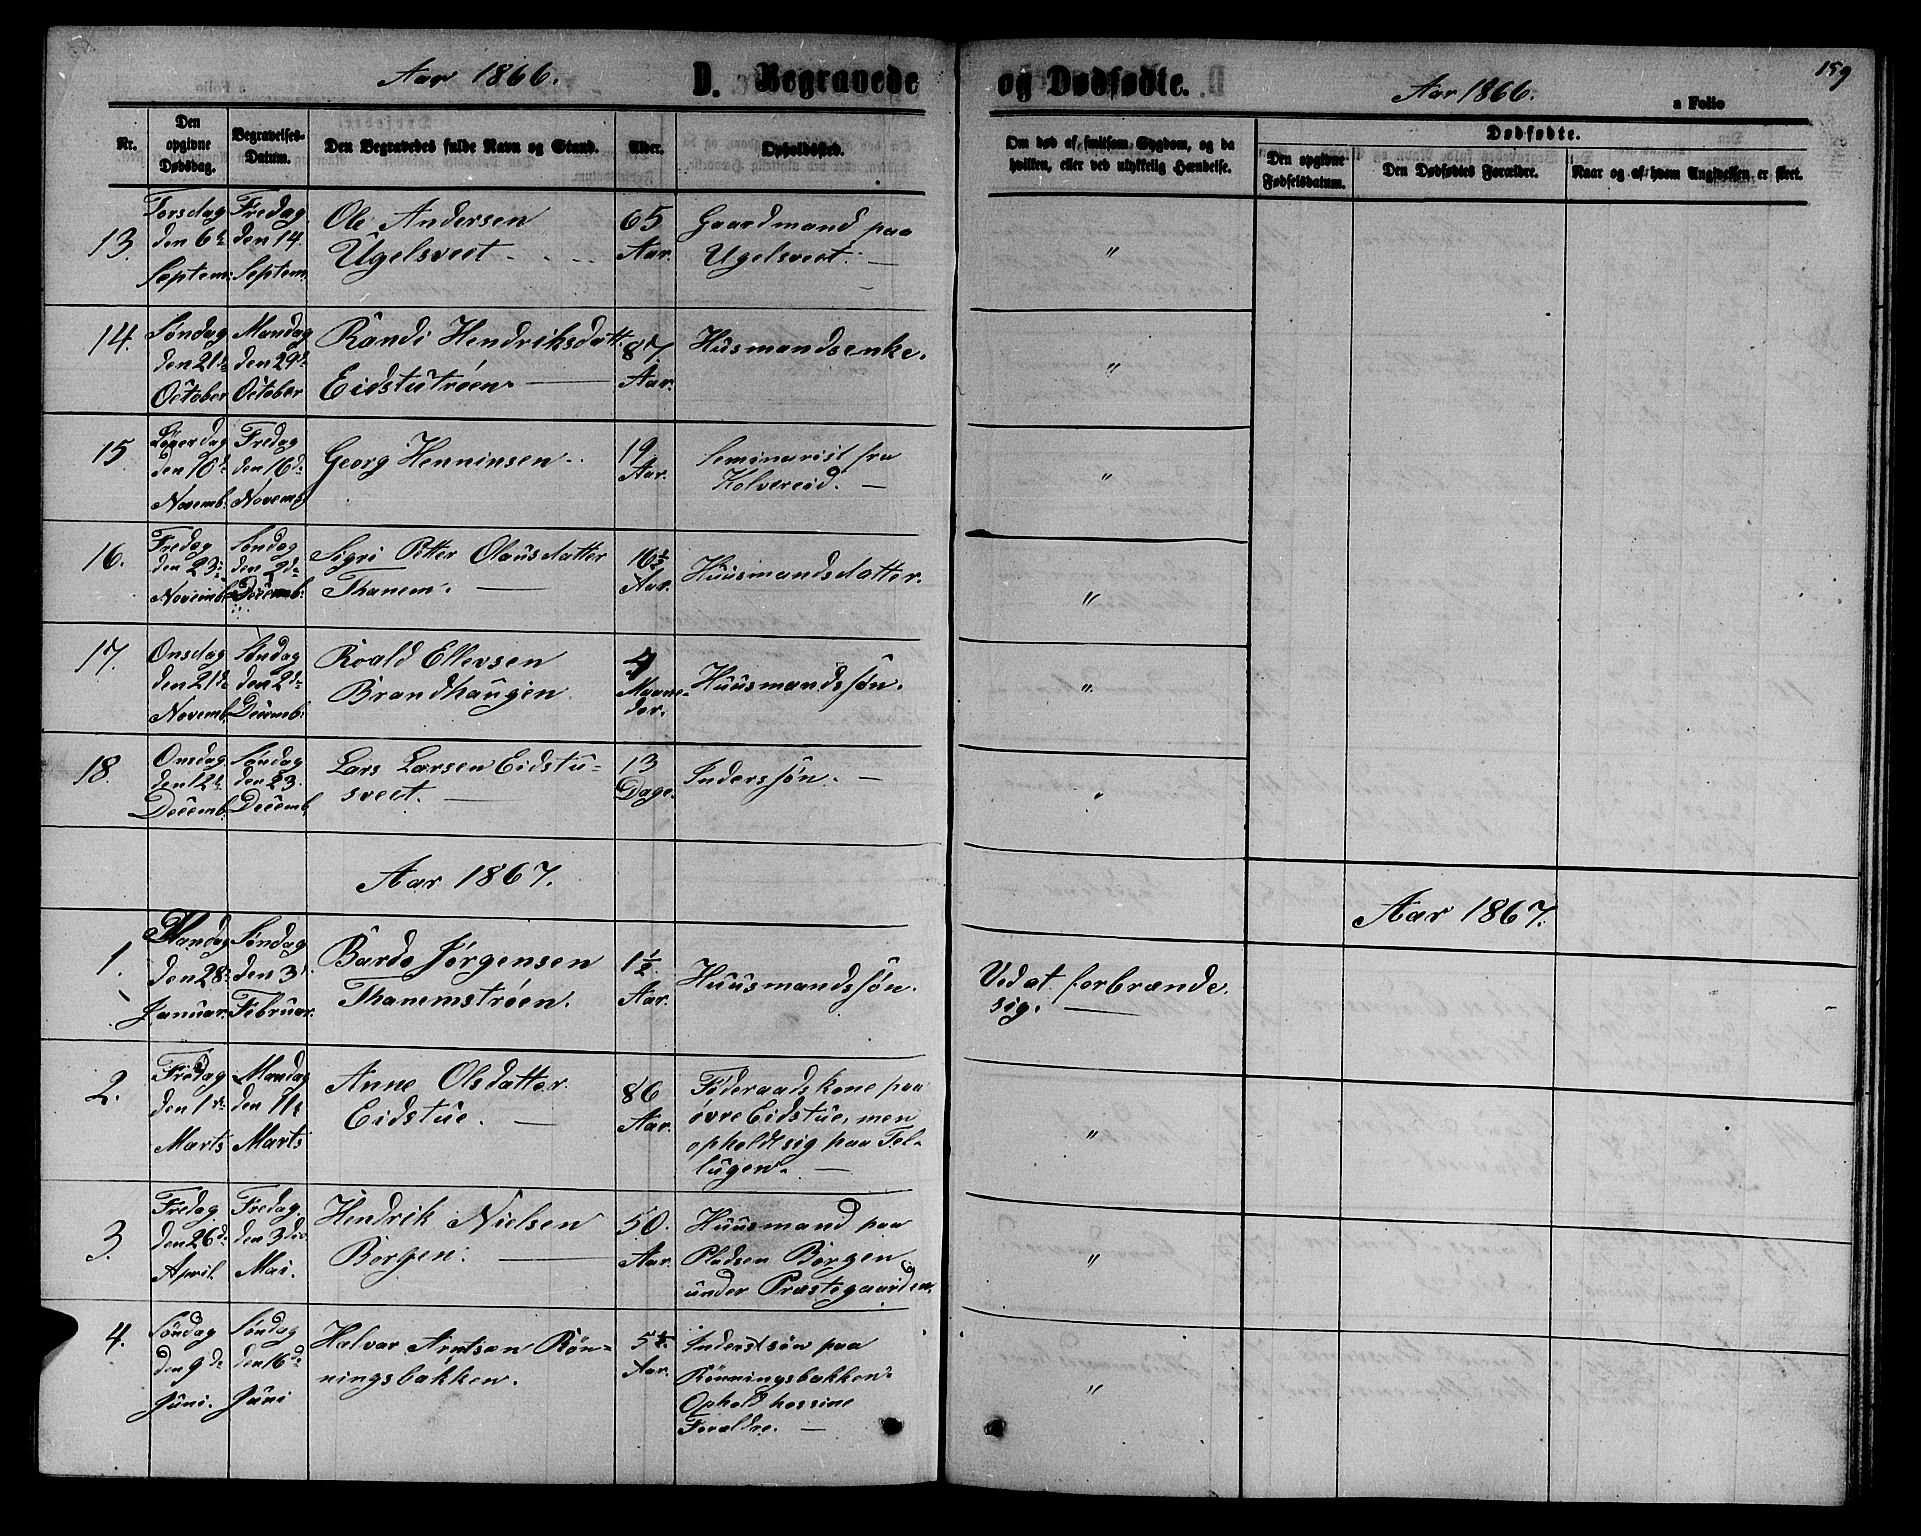 Aar 1866.
D. Begravede
og Dødfødte.
Aar 1866.
159
a Folio
Nr.
Den opgivne Dødsdag.
Begravelses-Datum.
Den Begravedes fulde Navn og Stand.
Alder.
Opholdssted.
Om død af smitsom Sygdom, og da
hvilken, eller ved ulykkelig Hændelse.
Dødfødte.
Den opgivne Fødselsdatum.
Den Dødfødtes Forældre.
Naar og af hvem Angivelsen er skeet.
13.
Torsdag
den 6te
Septem:
Fredag
den 14
Septem.
Ole Andersen
Ugelsveet
65
Aar.
Gaardmand paa
Ugelsveet.
"
14.
Søndag
den 21de
October
Mandag
den 29de
October
Randi Hendriksdatt.
Eidstutrøen.
87
Aar.
Husmandsenke.
"
15
Løverdag
den 10de
Novemb.
Fredag
den 16de
Novemb.
Georg Henninsen
19
Aar.
Seminarist fra
Kolvereid.
"
16.
Fredag
den 23de
Novemb.
Søndag
den 2de
Decemb:
Sigri Petter Olausdatter
Thanem.
16½
Aar.
Huusmandsdatter.
"
17.
Onsdag
den 21de
Novemb.
Søndag
den 2de
Decemb:
Roald Ellevsen
Brandhaugen
Maane-
der.
Huusmandssøn.
"
18.
Onsdag
den 12te
Decemb.
Søndag
den 23.
Decemb.
Lars Larsen Eidstu-
sveet.
13
Dage.
Inderssøn.
"
Aar 1867.
Aar 1867.
1.
Mandag
den 28de
Januar.
Søndag
den 3
Februar.
Bardo Jørgensen
Thanemstrøen.
1½
Aar.
Huusmandssøn.
Ved at forbrænde
sig.
2.
Fredag
den 1ste
Marts
Mandag
den 11te
Marts
Anne Olsdatter
Eidstue.
86
Aar.
Føderaadskone paa
øvre Eidstue, men
opholdt sig paa Tel-
lugen.
"
3.
Fredag
den 26de
April.
Fredag.
den 3die
Mai.
Hendrik Nielsen
Borgen.
50.
Aar.
Huusmand paa
Pladsen Borgen
under Præstegaarden.
"
4.
Søndag
den 9de
Juni.
Søndag
den 16de
Juni
Halvar Arntsen Røn-
ningsbakken.
Aar.
Inderstsøn paa
Rønningsbakken.
Ophold hos sine
Forældre.
"